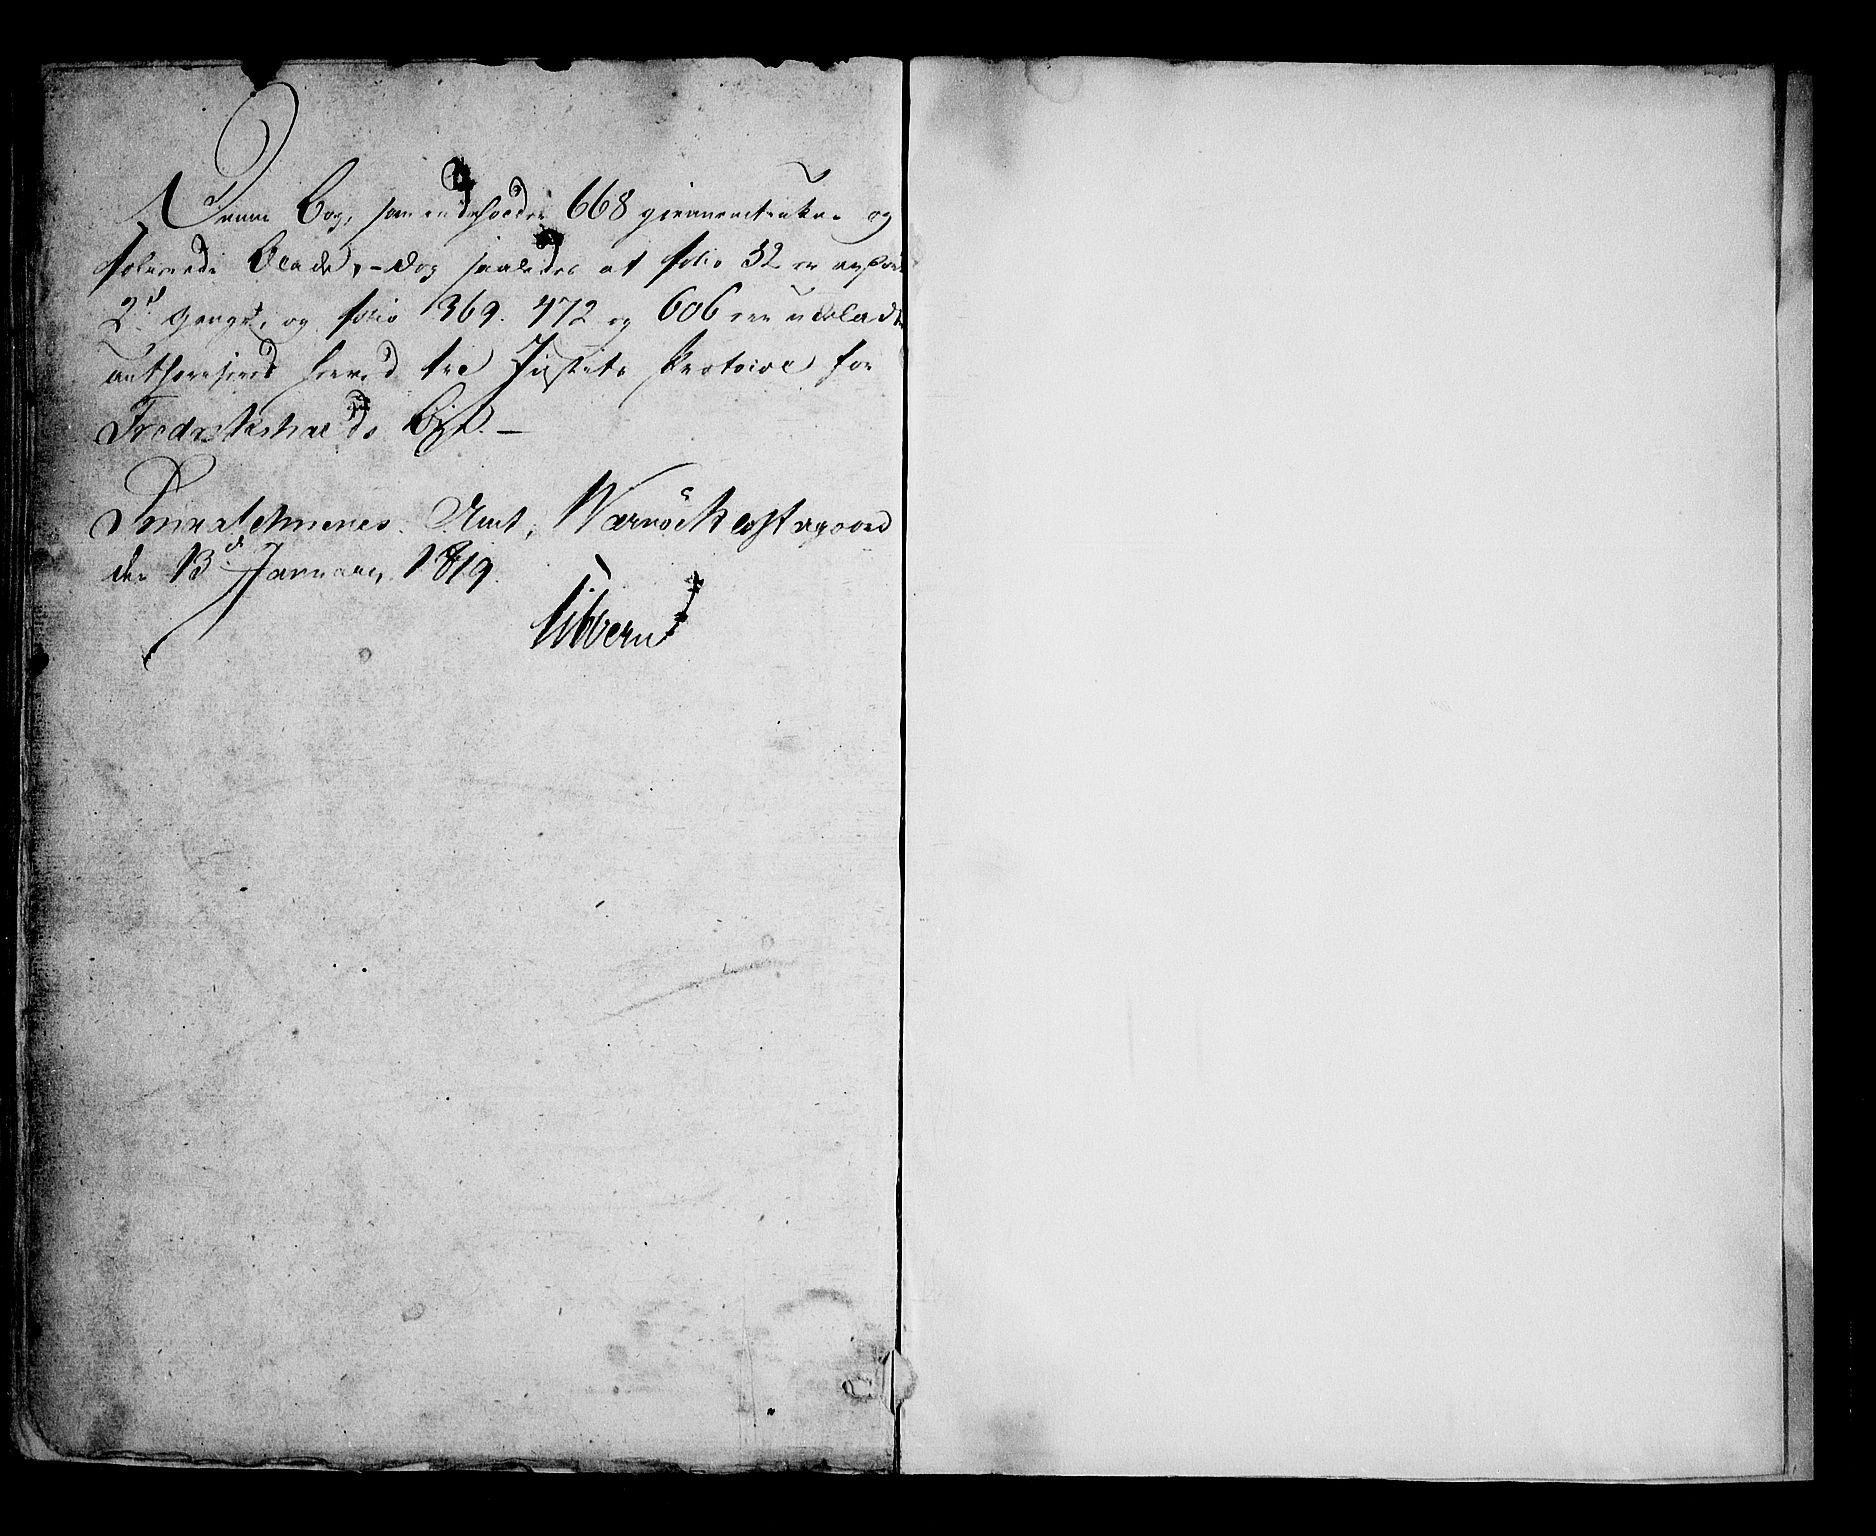 Denne Bog, som indeholder 668 giennemtrukne og
folierede Blade, - dog saaledes at folio 32 er anført
2de Gange, og folio 369. 472 og 606 ere udeladte
authoriseres herved til Justits Protocol for
Fredrikshalds Bye. -
Smaalehnenes Amt, Wærnöe Klostergaard
den 13de Januar 1819.
Sibbern